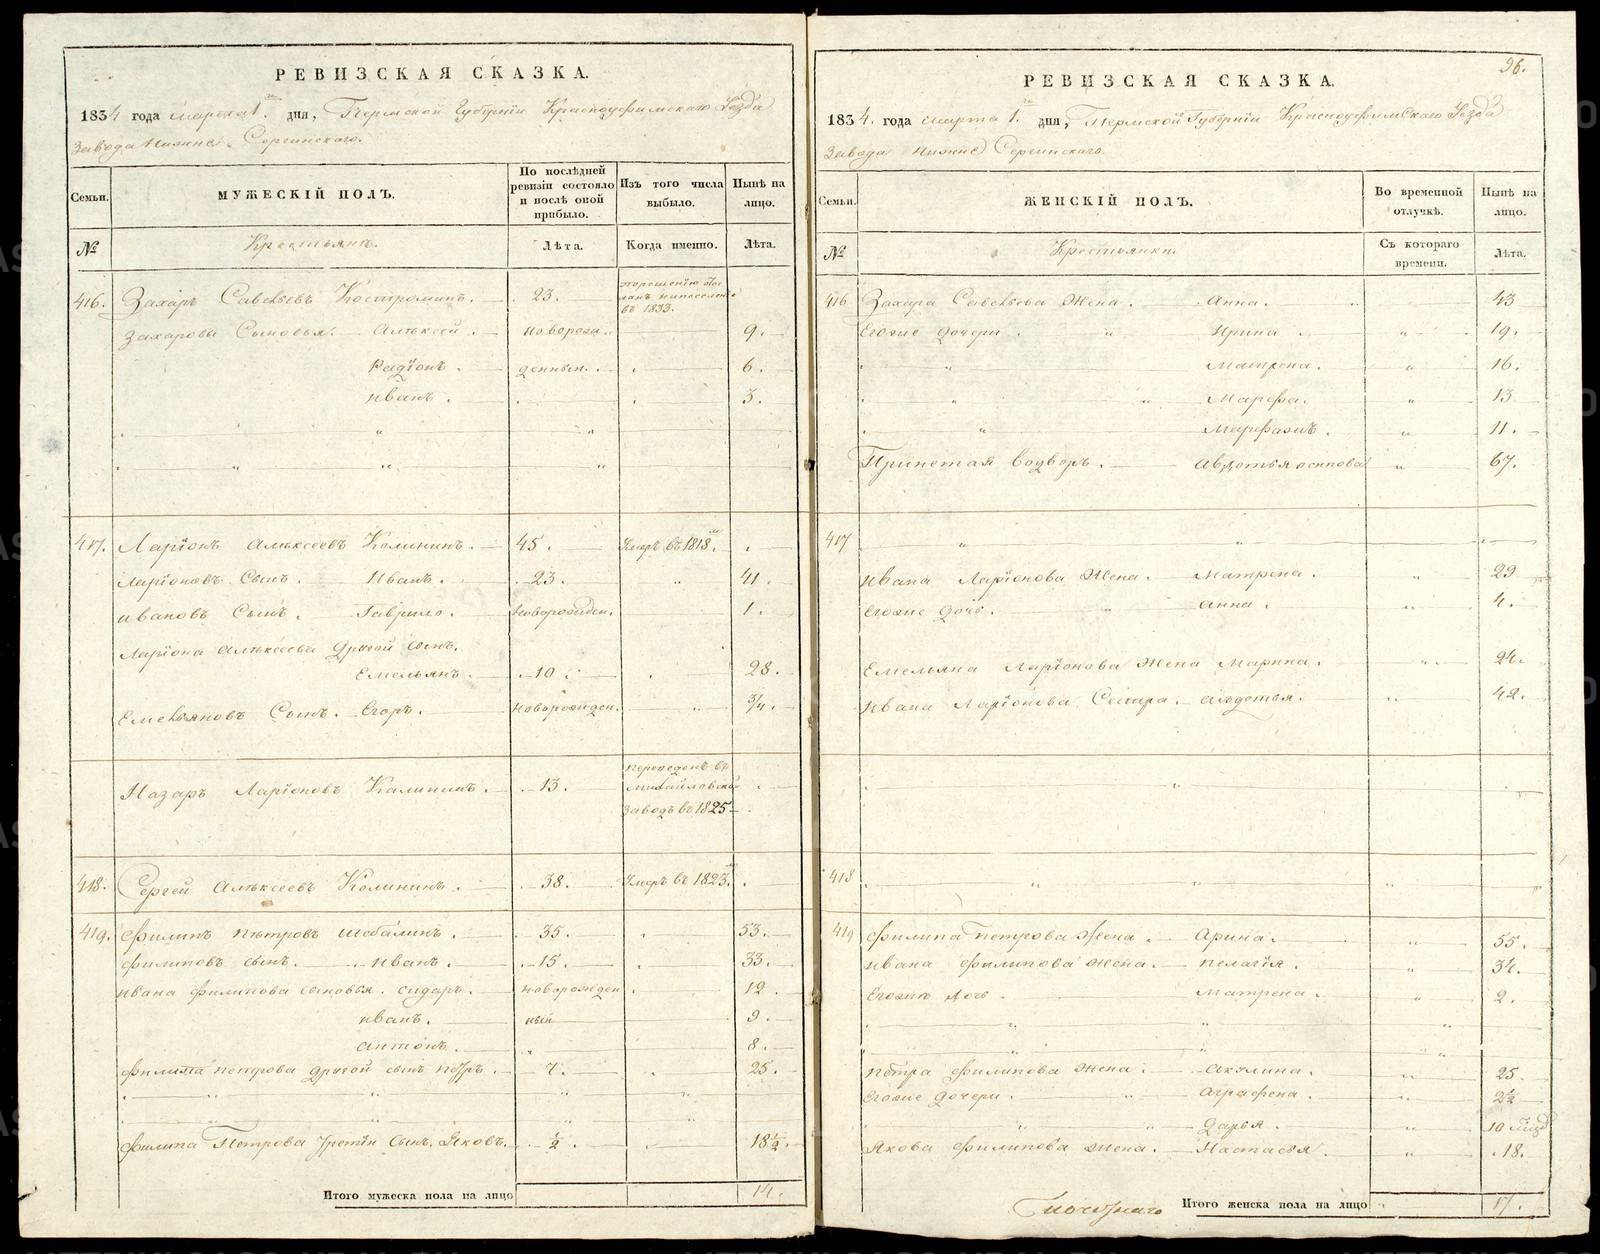 РЕВИЗСКАЯ СКАЗКА.
1834 года марта 1. дня, Пермской Губерніи Красноуфимскаго Уезда
Завода Нижне Сергинскаго.
Семьи. МУЖЕСКІЙ ПОЛЪ. По послѣдней ревизіи состояло и послѣ оной прибыло. Изъ того числа выбыло. Нынѣ на лицо.
№ Крестьянъ. Лѣта. Когда именно. Лѣта.
416. Захаръ Савельевъ Костроминъ. 23. въ 1833.
Захаровы Сыновья. Алѣксей. новорож- 9.
Радіонъ. денныи. 6.
Иванъ. 3.
417. Ларіонъ Алѣксеевъ Калининъ. 45. Умеръ въ 1818.
Ларіоновъ Сынъ. Иванъ. 23. 41.
Ивановъ Сынъ. Гаврило. Новорожден. 1.
Ларіона Алѣксеева Другой сынъ.
Емельянъ. 10. 28.
Емельяновъ Сынъ. Егоръ. новорожден. 3/4.
Назаръ Ларіоновъ Калининъ. 13. переведенъ въ Михайловской заводъ въ 1825
418. Сергей Алѣксеевъ Калининъ. 38. Умеръ въ 1823.
419. Филипъ Пѣтровъ Шебалинъ. 35. 53.
Филиповъ сынъ. Иванъ. 15. 33.
Ивана Филипова сыновья. Сидаръ. новорожден 12.
Иванъ. ныи 9.
Антонъ. 8.
Филипа Петрова другой сынъ Петръ. 7. 25.
Филипа Петрова Третіи Сынъ. Яковъ. 1/2. 18 1/2.
Итого мужеска пола на лицо 14.
96.
РЕВИЗСКАЯ СКАЗКА.
1834. года марта 1. дня, Пермской Губерніи Красноуфимскаго Уезда
Завода Нижне Сергинскаго.
Семьи. ЖЕНСКІЙ ПОЛЪ. Во временной отлучкѣ. Нынѣ на лицо.
№ Крестьянки. Съ котораго времени. Лѣта.
416 Захара Савельева Жена. Анна. 43
Егоже дочери. Ирина. 19.
Матрена. 16.
Марфа. 13
11.
Принетая водворъ. Авдотья осипова 67.
417
Ивана Ларіонова Жена. Матрена. 29
Егоже дочь. Анна. 4.
Емельяна Ларіонова Жена Марина. 24.
Ивана Ларіонова Сестра. Авдотья. 42.
418
419 Филипа Петрова Жена. Арина. 55.
Ивана Филипова жена. Пелагія. 34.
Егоже дочь. Матрена. 2.
Петра Филипова жена. Акулина. 25.
Егоже дочери. Аграфена. 2 1/2
Дарья. 10
Якова Филипова жена. Настасья. 18.
Итого женска пола на лицо 17.